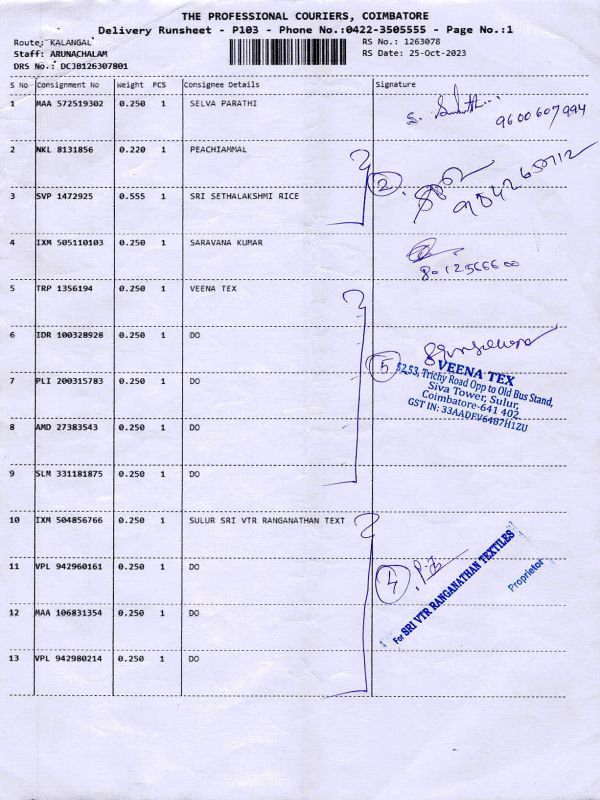 THE PROFESSIONAL COURIERS, COIMBATORE
Delivery Runsheet - P103 - Phone No.:0422-3505555 - Page No.:1
Route: KALANGAL RS No.: 1263078
Staff: ARUNACHALAM RS Date: 25-Oct-2023
DRS No.: DCJB126307801
S No Consignment No Weight PCS Consignee Details Signature
1 MAA 572519302 0.250 1 SELVA PARATHI
9600607994
2 NKL 8131856 0.220 1 PEACHIAMMAL
2 9842650712
3 SVP 1472925 0.555 1 SRI SETHALAKSHMI RICE
4 IXM 505110103 0.250 1 SARAVANA KUMAR
5 TRP 1356194 0.250 1 VEENA TEX
6 IDR 100328928 0.250 1 DO
5
VEENA TEX
52,53, Trichy Road Opp to Old Bus Stand,
Siva Tower, Sulur,
Coimbatore-641 402
GST IN: 33AADFV6487H1ZU
7 PLI 200315783 0.250 1 DO
8 AMD 27383543 0.250 1 DO
9 SLM 331181875 0.250 1 DO
10 IXM 504856766 0.250 1 SULUR SRI VTR RANGANATHAN TEXT
11 VPL 942960161 0.250 1 DO
4
For SRI VTR RANGANATHAN TEXTILES
Proprietor
12 MAA 106831354 0.250 1 DO
13 VPL 942980214 0.250 1 DO